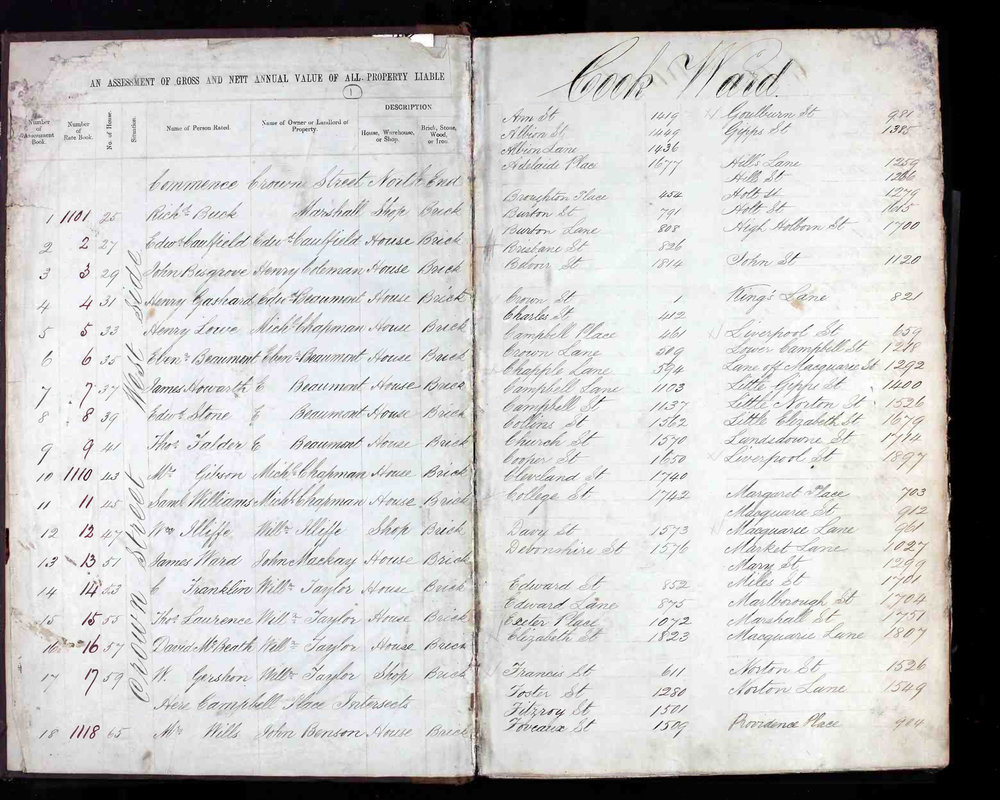 AN ASSESSMENT OF GROSS AND NETT ANNUAL VALUE OF ALL PROPERTY LIABLE
1
DESCRIPTION
Number of Assessment Book.
Number of Rate Book.
No. of House.
Situation.
Name of Person Rated.
Name of Owner or Landlord of Property.
House, Warehouse, or Shop.
Brick, Stone, Wood, or Iron.
Commence Crown Street North End
Crown Street West Side
1 1101 25 Richd. Buck Marshall Shop Brick
2 2 27 Edwd. Caulfield Edwd. Caulfield House Brick
3 3 29 John Bisgrove Henry Coleman House Brick
4 4 31 Henry Gashard Edwd. Beaumont House Brick
5 5 33 Henry Lowe Michl. Chapman House Brick
6 6 35 Ebenr. Beaumont Ebenr. Beaumont House Brick
7 7 37 James Howarth E Beaumont House Brick
8 8 39 Edwd. Stone E Beaumont House Brick
9 9 41 Thos. Falder E Beaumont House Brick
10 1110 43 Mr. Gibson Michl. Chapman House Brick
11 11 45 Saml. Williams Michl. Chapman House Brick
12 12 47 Wm. Illiffe Willm. Illiffe Shop Brick
13 13 51 James Ward John Mackay House Brick
14 14 53 C Franklin Willm. Taylor House Brick
15 15 55 Thos. Laurence Willm. Taylor House Brick
16 16 57 David McBeath Willm. Taylor House Brick
17 17 59 W. Gershon Willm. Taylor Shop Brick
Here Campbell Place Intersects
18 1118 65 Mr. Wills John Benson House Brick
Cook Ward
Ann St 1419
Albion St 1449
Albion Lane 1436
Adelaide Place 1677
Broughton Place 454
Burton St 791
Burton Lane 808
Brisbane St 826
1814
Crown St 1
Charles St 412
Campbell Place 461
Crown Lane 509
Chapple Lane 594
Campbell Lane 1103
Campbell St 1137
Collins St 1362
Church St 1570
Cooper St 1650
Cleveland St 1740
College St 1742
Davy St 1573
Devonshire St 1576
Edward St 852
Edward Lane 875
Exeter Place 1072
Elizabeth St 1823
Francis St 611
Foster St 1280
Fitzroy St 1501
Foveaux St 1509
Goulburn St 981
Gipps St 1385
Hill's Lane 1259
Hill St
Holt St 1279
Holt St
High Holborn St 1700
John St 1120
King's Lane 821
Liverpool St 659
Lower Campbell St
Lane off Macquarie St 1292
Little Gipps St 1400
Little Norton St 1526
Little Elizabeth St 1679
Lansdowne St
Liverpool St 1897
Margaret Place 703
Macquarie St 912
Macquarie Lane 961
Market Lane 1027
Mary St 1299
Miles St 1701
Marlborough St 1704
Marshall St 1751
Macquarie Lane 1807
Norton St 1526
Norton Lane 1549
Providence Place 904